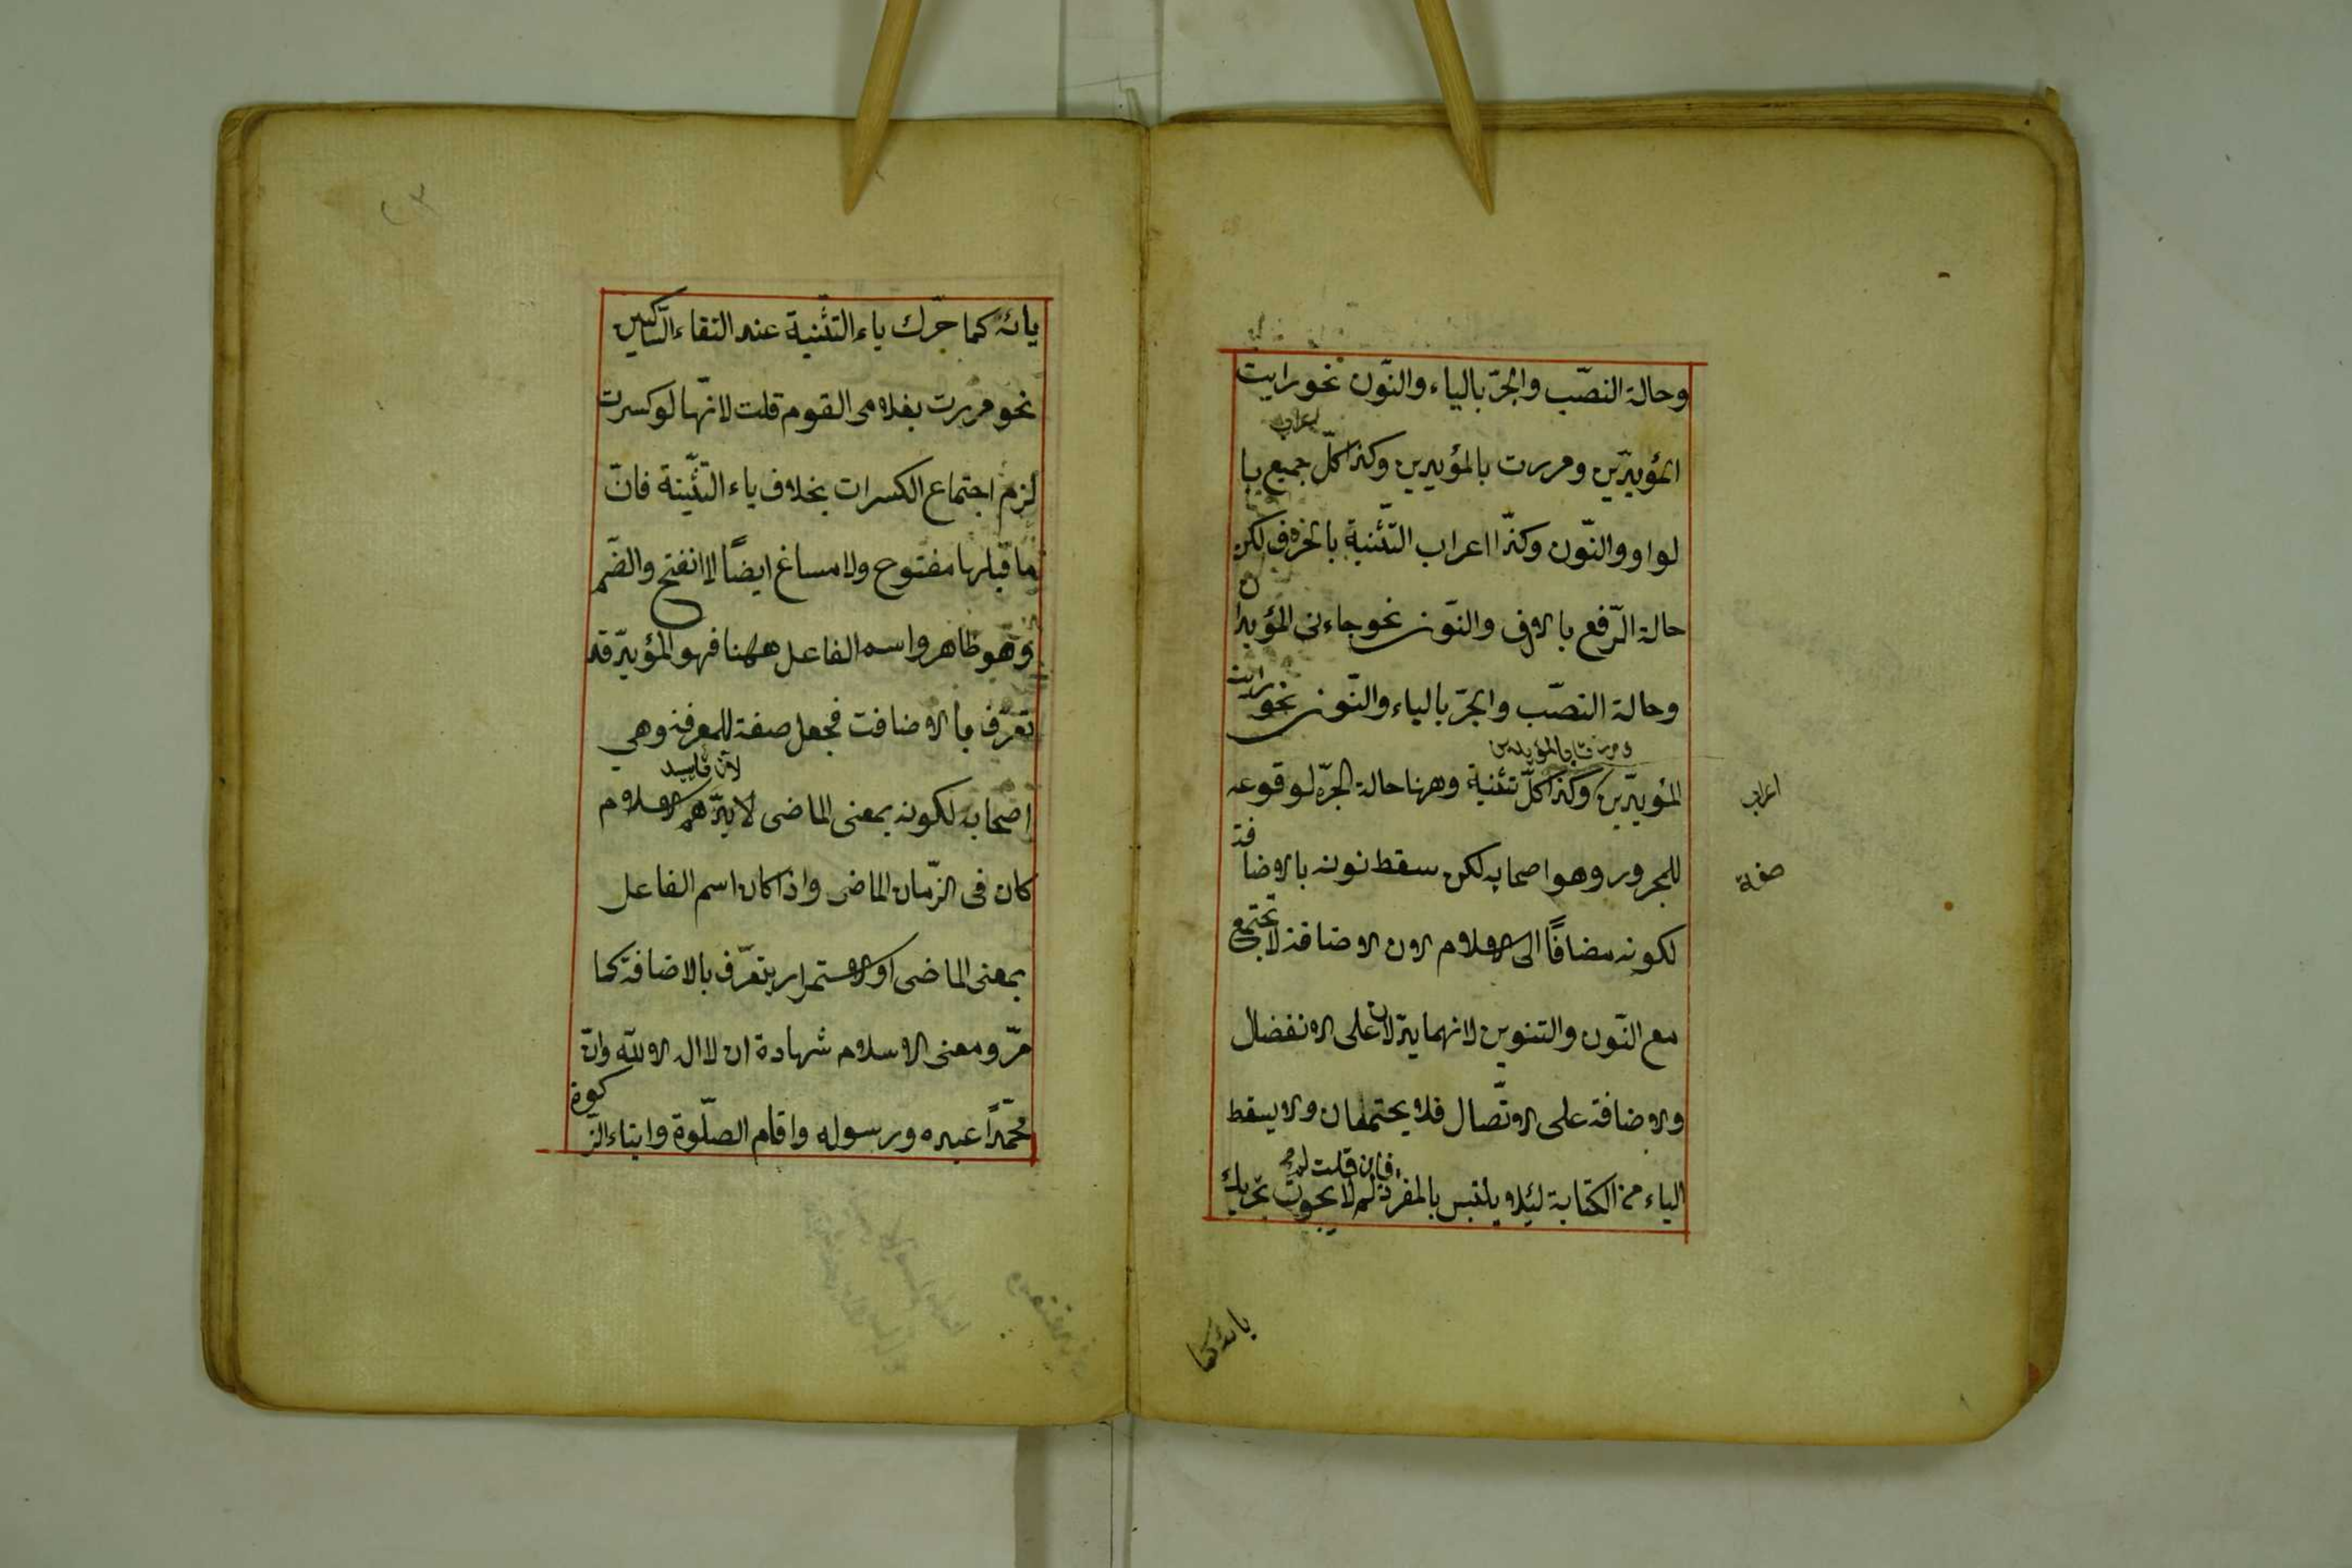 وحالة النصّب والجرّ بالياء والنّون نحو رايت
اعراب
المؤيدّين ومررت بالمؤيدين وكذا كلّ جميع با
لواو والنّون وكذّا اعراب التّثنية بالحروف لكن
حالة الرّفع بالالف والنّون نحو جاءنى المؤيدا
ن
وحالة النصّب والجرّ بالياء والنّون نحو رايت
ومررت بالمؤيدين
المؤيدّين وكذا كلّ تثنية وههنا حالة الجرّ لوقوعه
اعراب
للمجرور وهو اصحابه لكن سقط نونه بالاضا
فة
صفة
لكونه مضافًا الى الاسلام لان الاضافة لا تجتمع
مع النّون والتنوين لانهما يدّلان على الانفصال
والاضافة على الاتّصال فلا يجتمعان ولا يسقط
فان قلت لم
الياء من الكتابة لئلا يلتبس بالمفرد لم لا يجوز تحريك
يائه كما
يائه كما حرّك ياء التّثنية عند التقاء السّاكنين
نحو مررت بغلامى القوم قلت لانّها لو كسرت
لزم اجتماع الكسرات بخلاف ياء التّثنية فانّ
ما قبلها مفتوح ولا مساغ ايضًا لا انفتح والضّم
وهو ظاهر واسم الفاعل ههنا فهو المؤيدّ قد
تعرّف بالاضافت فجعل صفة للمعرفة وهي
لان تاييد
اصحابه لكونه بمعنى الماضى لا يدّهم الاسلام
كان فى الزّمان الماضى واذا كان اسم الفاعل
بمعنى الماضى او الاستمرار يتعرّف بالاضافة كما
مرّ ومعنى الاسلام شهادة ان لا اله الا الله وانّ
محمّدًا عبده ورسوله واقام الصلّوة وايتاء الزّ
كوة